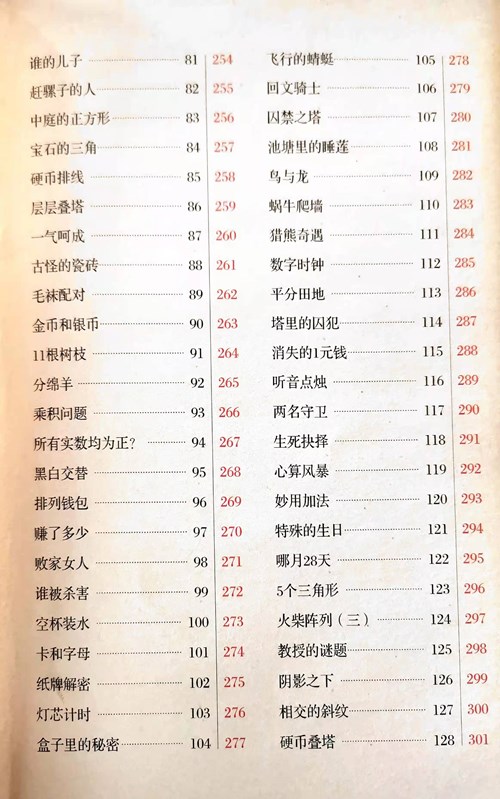 谁的儿子 81 254
赶骡子的人 82 255
中庭的正方形 83 256
宝石的三角 84 257
硬币排线 85 258
层层叠塔 86 259
一气呵成 87 260
古怪的瓷砖 88 261
毛袜配对 89 262
金币和银币 90 263
11根树枝 91 264
分绵羊 92 265
乘积问题 93 266
所有实数均为正? 94 267
黑白交替 95 268
排列钱包 96 269
赚了多少 97 270
败家女人 98 271
谁被杀害 99 272
空杯装水 100 273
卡和字母 101 274
纸牌解密 102 275
灯芯计时 103 276
盒子里的秘密 104 277
飞行的蜻蜓 105 278
回文骑士 106 279
囚禁之塔 107 280
池塘里的睡莲 108 281
鸟与龙 109 282
蜗牛爬墙 110 283
猎熊奇遇 111 284
数字时钟 112 285
平分田地 113 286
塔里的囚犯 114 287
消失的1元钱 115 288
听音点烛 116 289
两名守卫 117 290
生死抉择 118 291
心算风暴 119 292
妙用加法 120 293
特殊的生日 121 294
哪月28天 122 295
5个三角形 123 296
火柴阵列(三) 124 297
教授的谜题 125 298
阴影之下 126 299
相交的斜纹 127 300
硬币叠塔 128 301